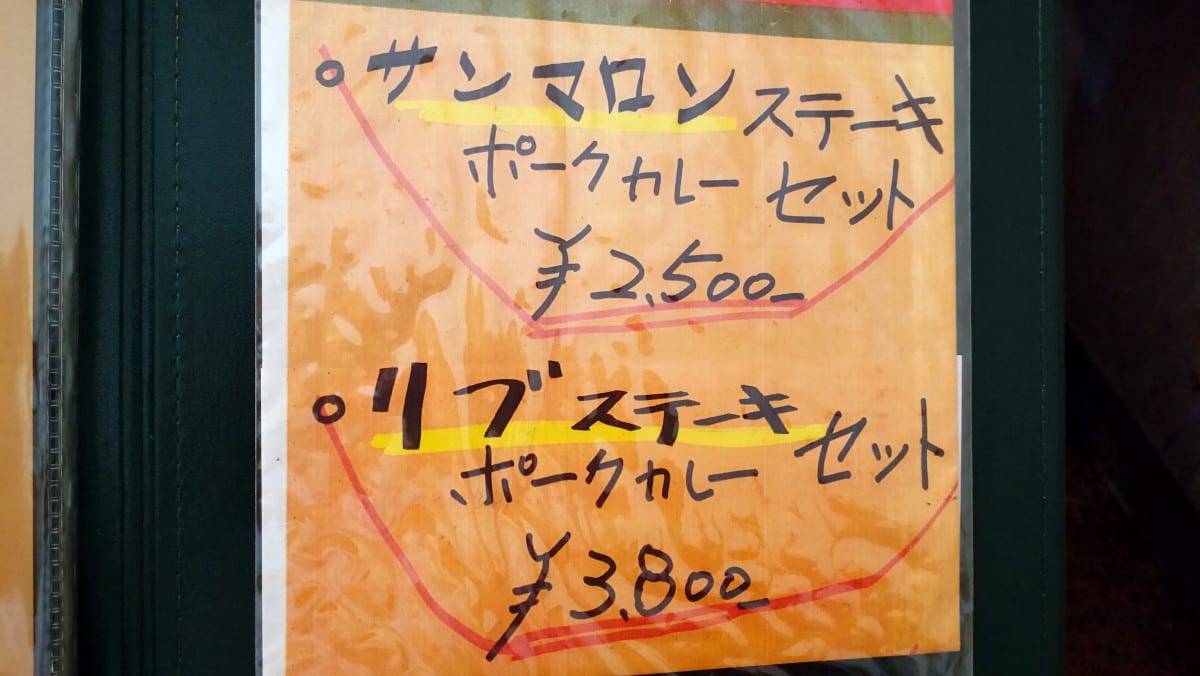 ○サンマロンステーキ
ポークカレーセット
¥2,500-
○リブステーキ
ポークカレーセット
¥3,800-